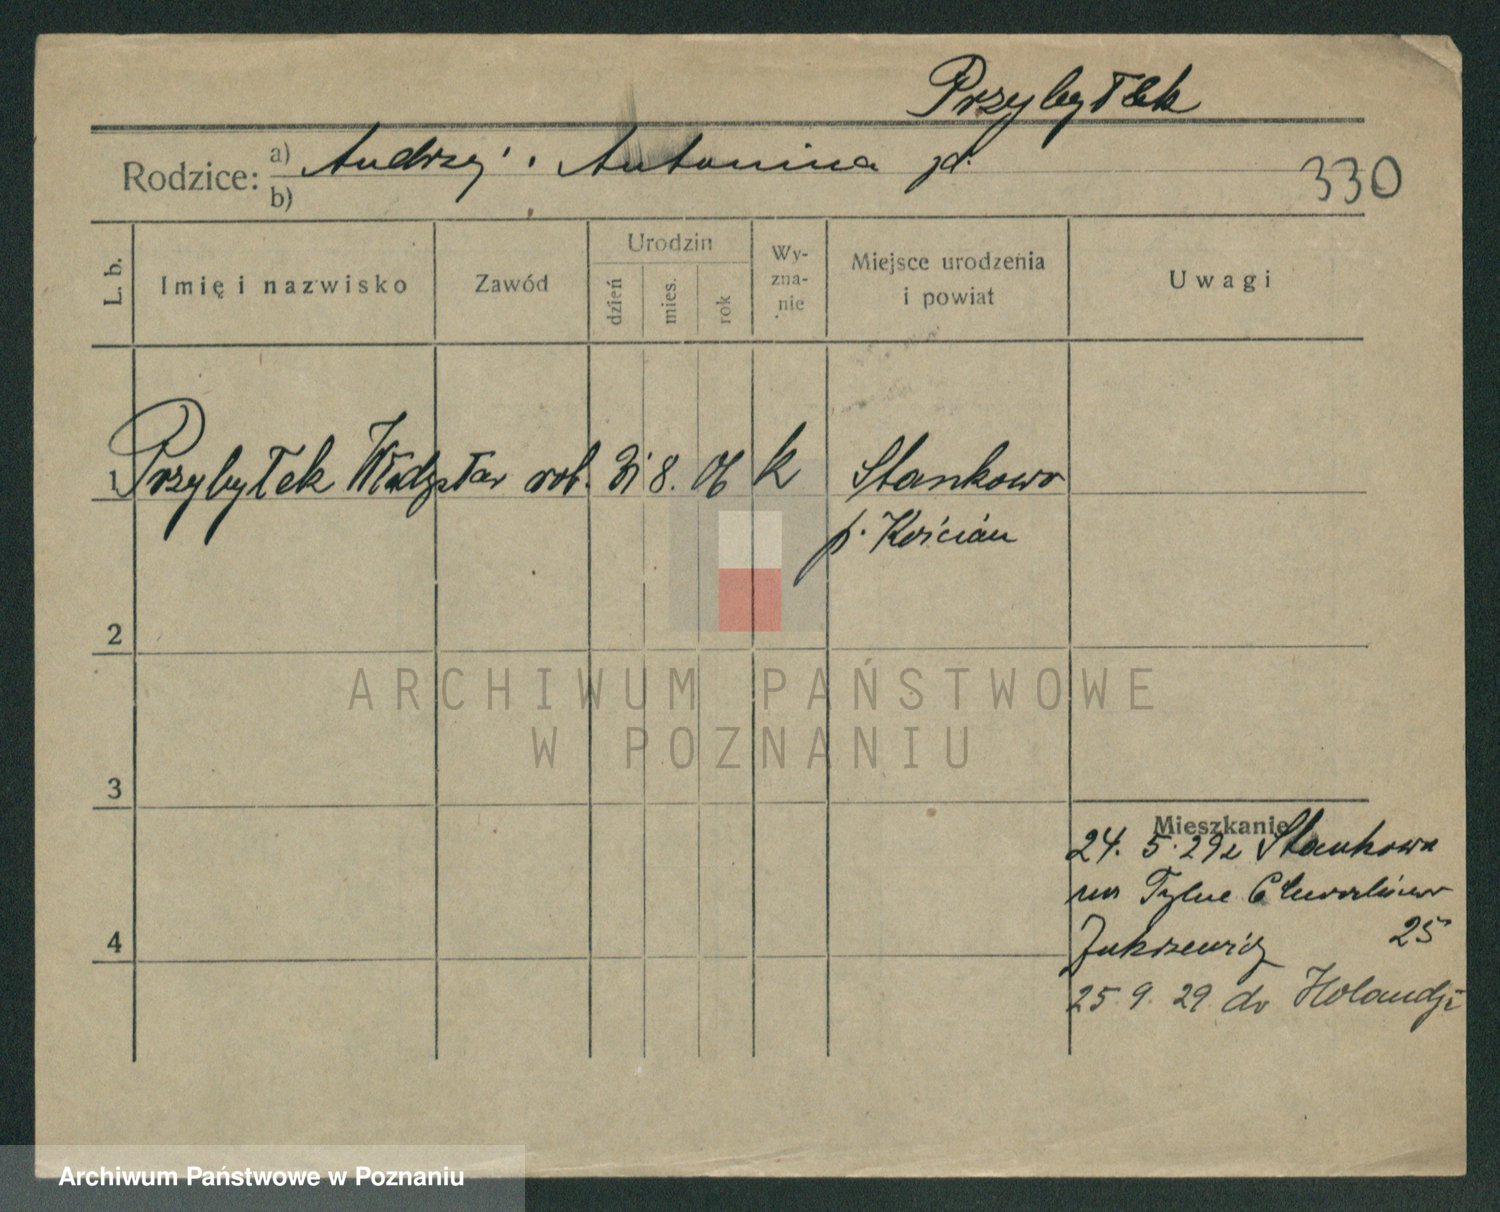 Przybyłek
Rodzice: a) Andrzej i Antonina jd.
b)
330
L. b.
Imię i nazwisko
Zawód
Urodzin
dzień
mies.
rok
Wy-
zna-
nie
Miejsce urodzenia
i powiat
Uwagi
1 Przybyłek Władysław rob. 31 8. 06 k Stankowo
p. Kościan
2
ARCHIWUM PAŃSTWOWE
W POZNANIU
3
Mieszkanie
24. 5. 29 z Stankowa
na Tylne
25
4
25. 9. 29 do Holandji
Archiwum Państwowe w Poznaniu